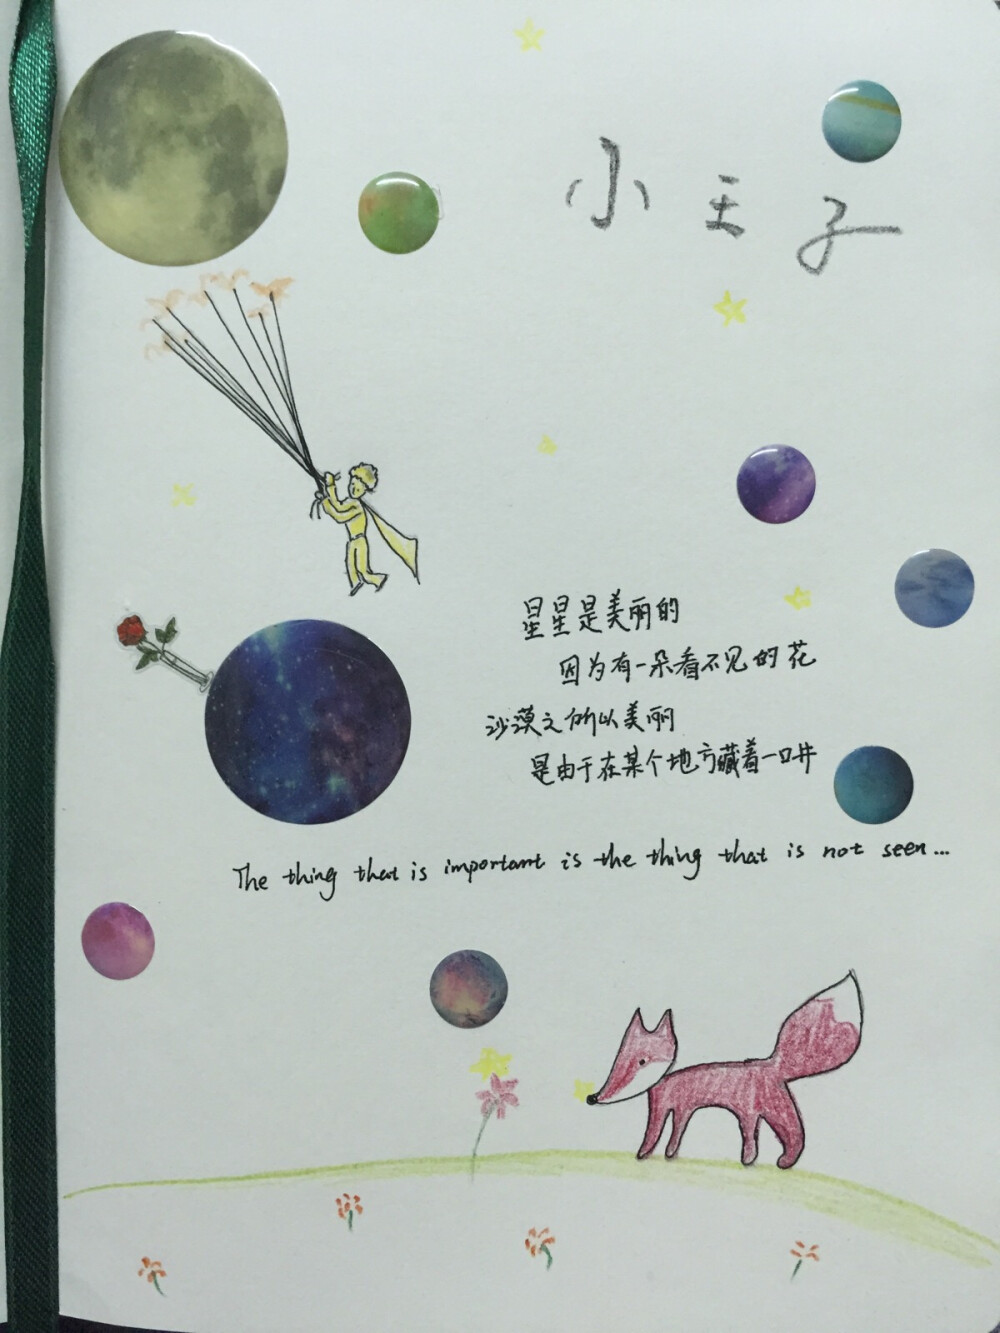 小王子
星星是美丽的
因为有一朵看不见的花
沙漠之所以美丽
是由于在某个地方藏着一口井
The thing that is important is the thing that is not seen...